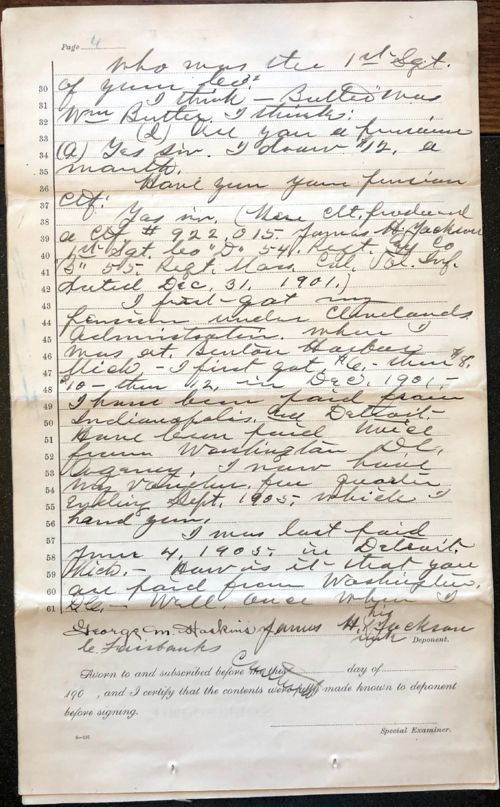 Page 4
Who was the 1st Sgt.
30 of your Co?
31 I think – Butler was
32 Wm Butler I think.
33 (Q) Are you a pensioner
34 (A) Yes sir. I draw $12. a
35 month.
36 Have you your pension
37 ctf.
38 Yes sir. (Here clt. produced
39 a Ctf # 922,015 James H. Jackson
40 1st Sgt. Co "D" 54. Regt. Co
41 "5" 55 Regt. Mass. Col. Vol. Inf.
42 dated Dec. 31, 1901.)
43 I first got my
44 pension under Clevelands
45 Administration when I
46 was at Benton Harbor
47 Mich. – I first got $6 – then $8.
48 $10 – then 12, in Dec. 1901. –
49 I have been paid from
50 Indianapolis, and Detroit. –
51 Have been paid twice
52 from Washington D.C.
53 Agency. I now have
54 my voucher for quarter
55 Ending Sept. 1905, which I
56 hand you.
57 I was last paid
58 June 4, 1905 in Detroit.
59 Mich. – How is it that you
60 are paid from Washington
61 D.C. – Well, once when I
George M. Haskins James H. his X mark Jackson
C. Fairbanks Deponent.
Sworn to and subscribed before me this day of
190 , and I certify that the contents were fully made known to deponent
before signing.
Special Examiner.